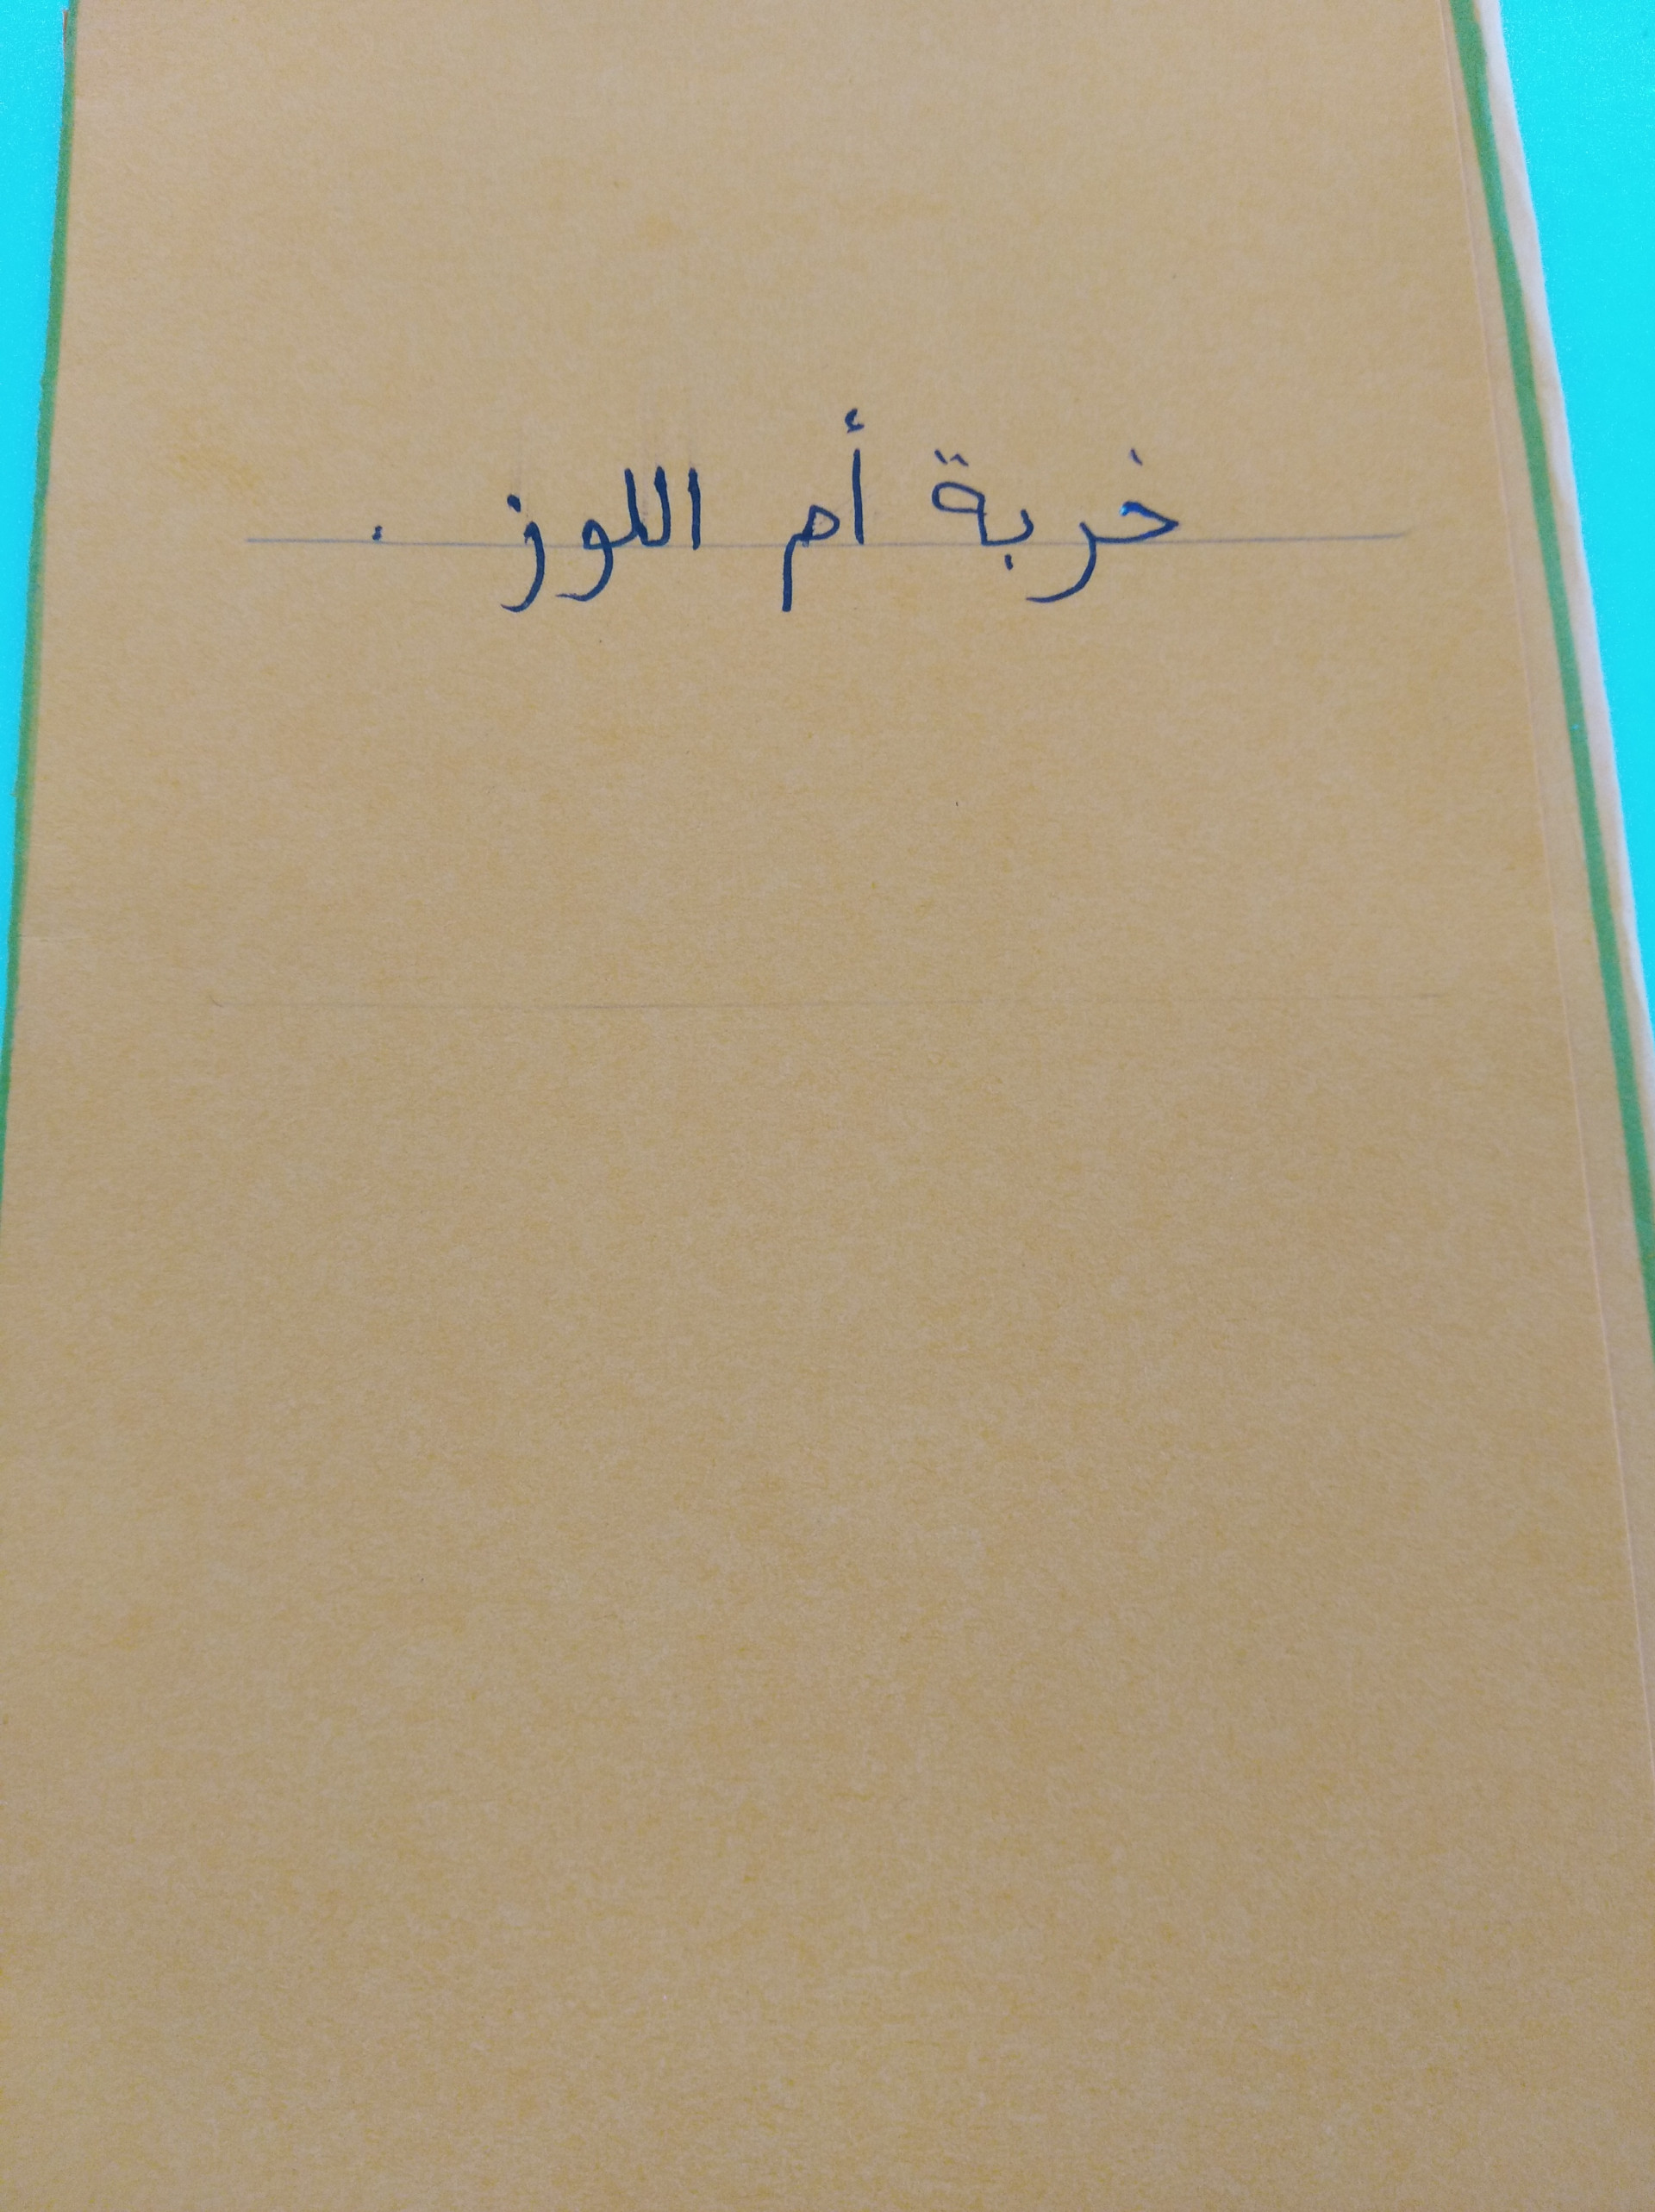 خربة أم اللوز .